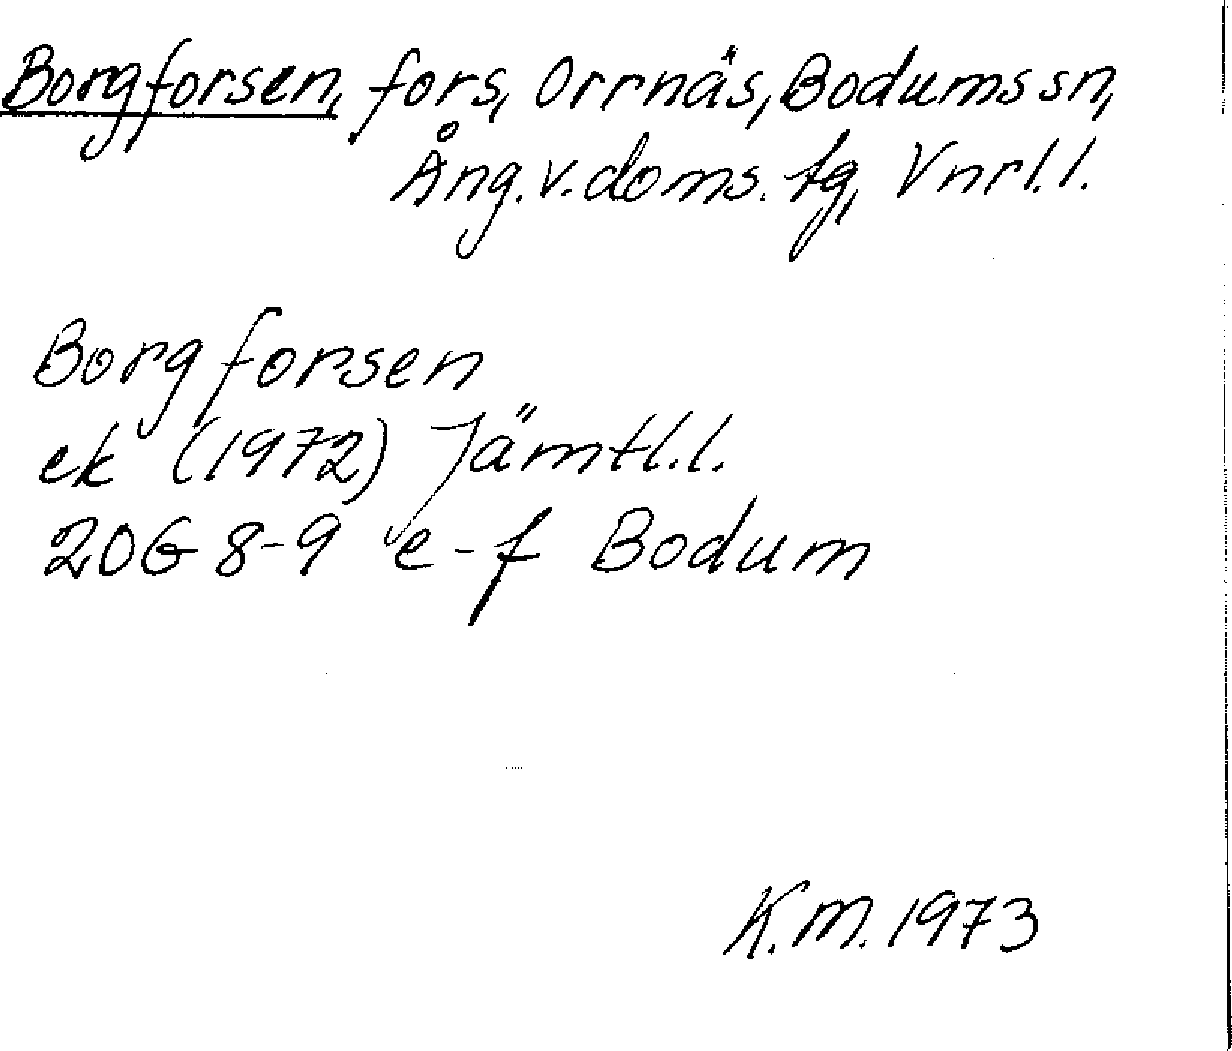 Borgforsen, fors, Orrnäs, Bodums sn,
Ång. v. doms. tg, Vnrl. l.
Borgforsen
ek (1972) Jämtl. l.
20G 8-9 e-f Bodum
K.M. 1973